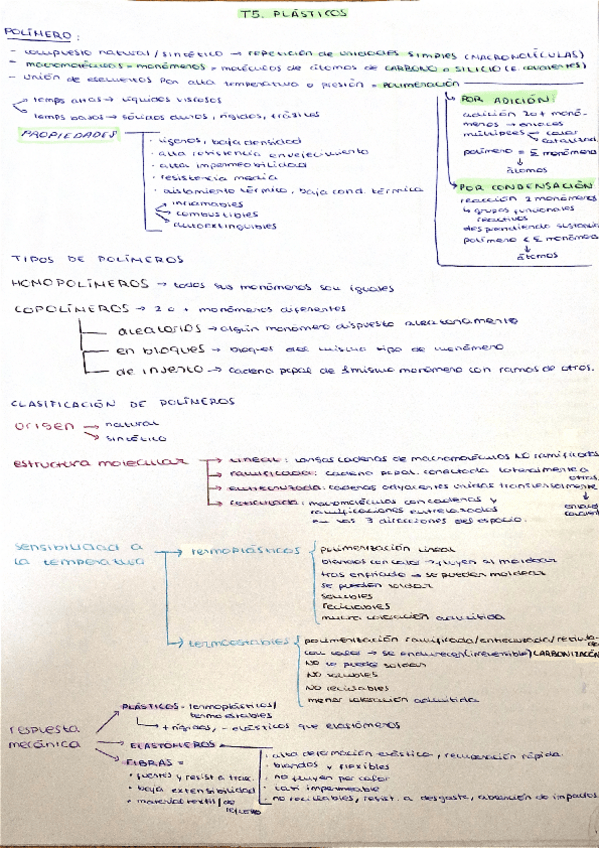 T5. PLÁSTICOS
POLÍMERO:
- compuesto natural/sintético → repetición de unidades simples (MACROMOLÍCULAS)
- macromoléculas = monómeros = moléculas de átomos de CARBONO o SILICIO (E. covalentes)
- unión de elementos por alta temperatura o presión = polimeración
temps altas → líquidos viscosos
temps bajas → sólidos duros, rígidos, frágiles
POR ADICIÓN:
adición 2 o + monó-
meros → enlaces
múltiples calor
catalizad.
polímero = Σ monómero
átomos
POR CONDENSACIÓN
reacción 2 monómeros
4 grupos funcionales
reactivos
desprendiendo sustancia
polímero < Σ monómeros
átomos
PROPIEDADES
· ligeros, baja densidad
· alta resistencia envejecimiento
· alta impermeabilidad
· resistencia media
· aislamiento térmico, baja cond. térmica
inflamables
combustibles
autoextinguibles
TIPOS DE POLÍMEROS
HOMOPOLÍMEROS → todos sus monómeros son iguales
COPOLÍMEROS → 2 o + monómeros diferentes
aleatorios → algún monómero dispuesto aleatoriamente
en bloques → bloques del mismo tipo de monómero
de injerto → cadena ppal. de 1 mismo monómero con ramas de otros.
CLASIFICACIÓN DE POLÍMEROS
origen → natural
→ sintético
estructura molecular → lineal: largas cadenas de macromoléculas NO ramificadas
→ ramificada: cadena ppal. conectada lateralmente a otras.
→ entrecruzada: cadenas adyacentes unidas transversalmente
enlaces
covalent
→ reticulada: macromoléculas con cadenas y
ramificaciones entrelazadas
en las 3 direcciones del espacio.
sensibilidad a
la temperatura
→ termoplásticos
polimerización lineal
blandos con calor → fluyen al moldear
tras enfriado → se pueden moldear
se pueden soldar
solubles
reciclables
mucha coloración admitida
→ termoestables
polimerización ramificada/entrecruzada/reticula-
da
con calor → se endurecen (irreversible) CARBONIZACIÓN
NO se puede soldar
NO solubles
NO reciclables
menor coloración admitida
respuesta
mecánica
PLÁSTICOS - termoplásticos/
termoestables
→ + rígidos, - elásticos que elastómeros
ELASTÓMEROS
· alta deformación elástica, recuperación rápida.
· blandos y flexibles
· no fluyen por calor
· casi impermeable
· no reciclables, resist. a desgaste, absorción de impactos
FIBRAS =
• fuertes y resist a trac.
• baja extensibilidad
• material textil/de